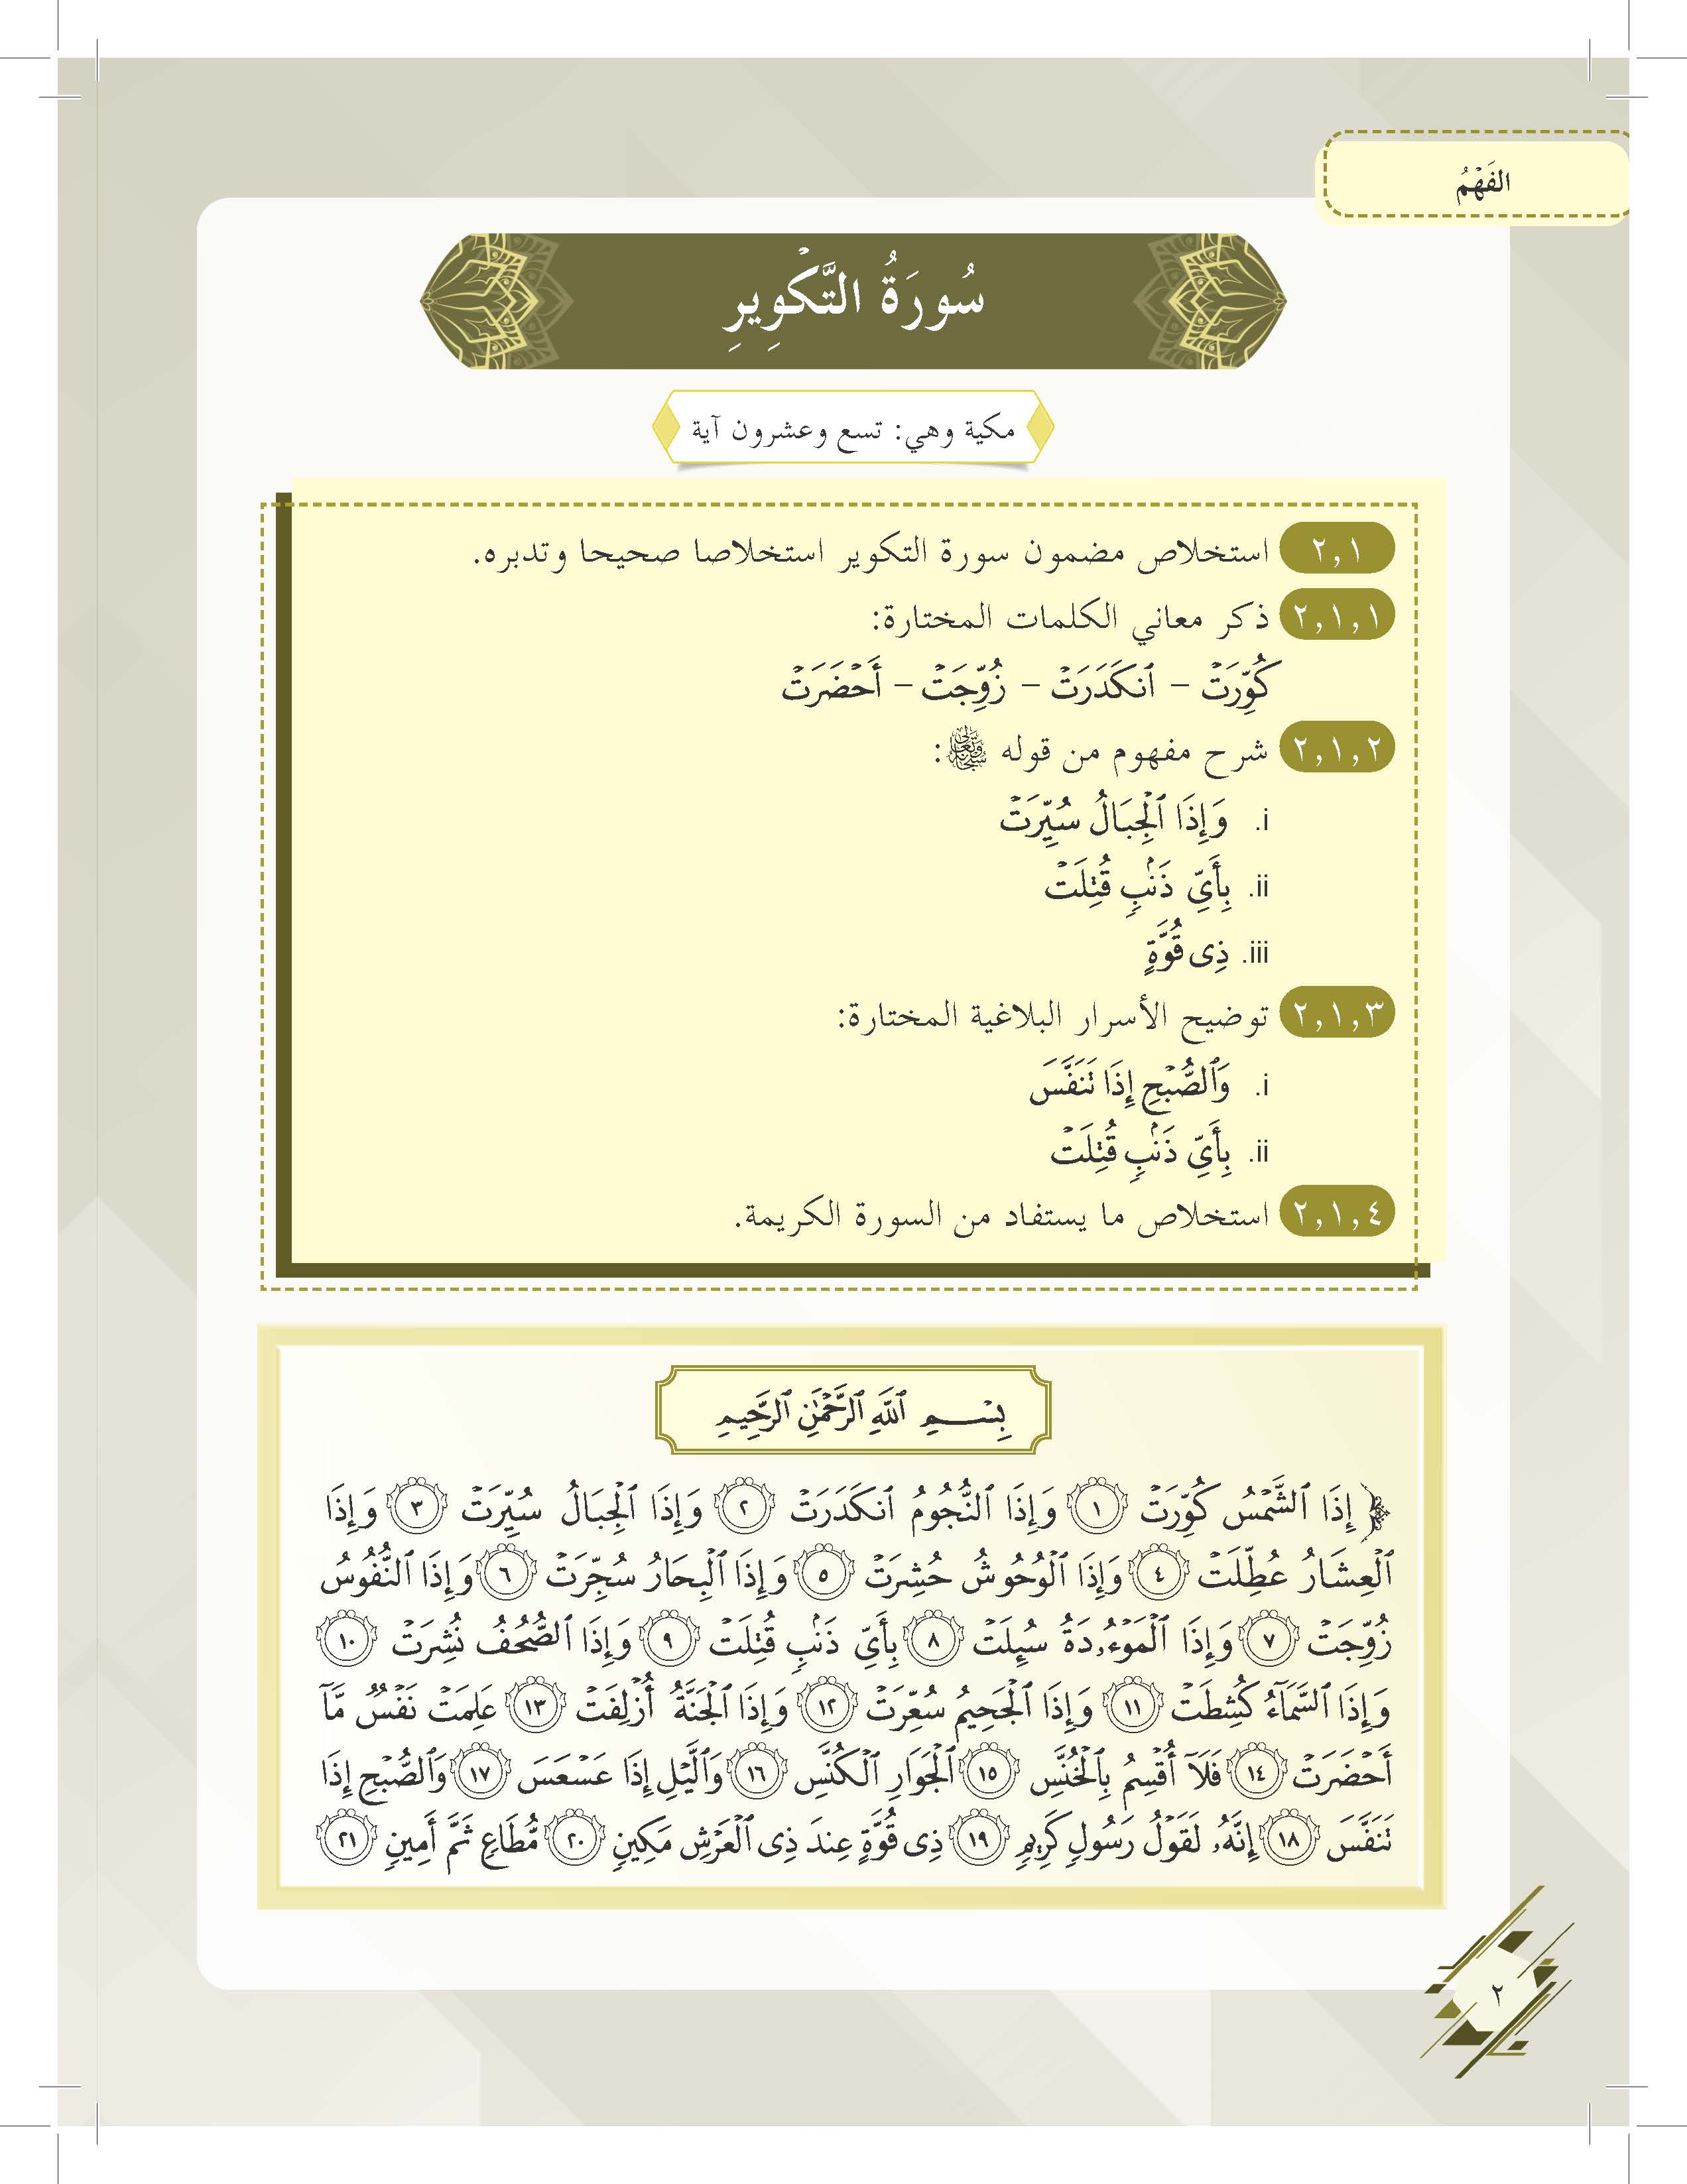 الفَهْمُ
سُورَةُ التَّكْوِيرِ
مكية وهي: تسع وعشرون آية
٢,١ استخلاص مضمون سورة التكوير استخلاصا صحيحا وتدبره.
٢,١,١ ذكر معاني الكلمات المختارة:
كُوِّرَتۡ – ٱنكَدَرَتۡ – زُوِّجَتۡ – أَحۡضَرَتۡ
٢,١,٢ شرح مفهوم من قوله سبحانه وتعالى:
i. وَإِذَا ٱلۡجِبَالُ سُيِّرَتۡ
ii. بِأَيِّ ذَنۢبٖ قُتِلَتۡ
iii. ذِي قُوَّةٍ
٢,١,٣ توضيح الأسرار البلاغية المختارة:
i. وَٱلصُّبۡحِ إِذَا تَنَفَّسَ
ii. بِأَيِّ ذَنۢبٖ قُتِلَتۡ
٢,١,٤ استخلاص ما يستفاد من السورة الكريمة.
بِسۡمِ ٱللَّهِ ٱلرَّحۡمَٰنِ ٱلرَّحِيمِ
﴿ إِذَا ٱلشَّمۡسُ كُوِّرَتۡ ١ وَإِذَا ٱلنُّجُومُ ٱنكَدَرَتۡ ٢ وَإِذَا ٱلۡجِبَالُ سُيِّرَتۡ ٣ وَإِذَا
ٱلۡعِشَارُ عُطِّلَتۡ ٤ وَإِذَا ٱلۡوُحُوشُ حُشِرَتۡ ٥ وَإِذَا ٱلۡبِحَارُ سُجِّرَتۡ ٦ وَإِذَا ٱلنُّفُوسُ
زُوِّجَتۡ ٧ وَإِذَا ٱلۡمَوۡءُۥدَةُ سُئِلَتۡ ٨ بِأَيِّ ذَنۢبٖ قُتِلَتۡ ٩ وَإِذَا ٱلصُّحُفُ نُشِرَتۡ ١٠
وَإِذَا ٱلسَّمَآءُ كُشِطَتۡ ١١ وَإِذَا ٱلۡجَحِيمُ سُعِّرَتۡ ١٢ وَإِذَا ٱلۡجَنَّةُ أُزۡلِفَتۡ ١٣ عَلِمَتۡ نَفۡسٞ مَّآ
أَحۡضَرَتۡ ١٤ فَلَآ أُقۡسِمُ بِٱلۡخُنَّسِ ١٥ ٱلۡجَوَارِ ٱلۡكُنَّسِ ١٦ وَٱلَّيۡلِ إِذَا عَسۡعَسَ ١٧ وَٱلصُّبۡحِ إِذَا
تَنَفَّسَ ١٨ إِنَّهُۥ لَقَوۡلُ رَسُولٖ كَرِيمٖ ١٩ ذِي قُوَّةٍ عِندَ ذِي ٱلۡعَرۡشِ مَكِينٖ ٢٠ مُّطَاعٖ ثَمَّ أَمِينٖ ٢١
٢